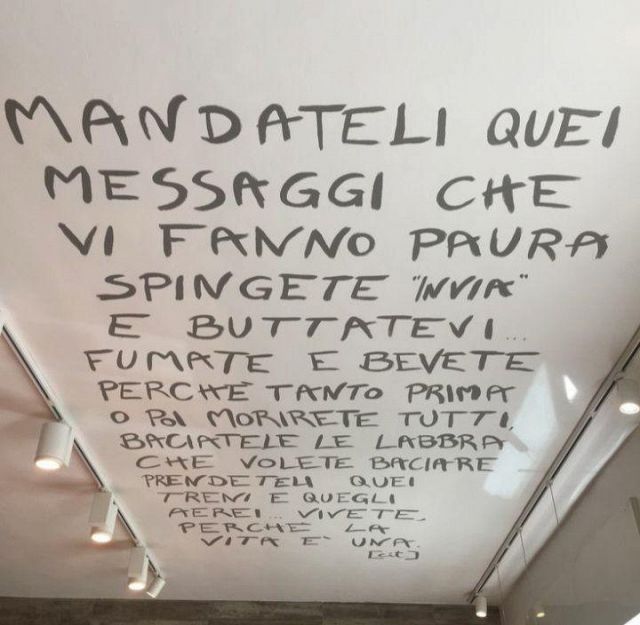 MANDATELI QUEI
MESSAGGI CHE
VI FANNO PAURA
SPINGETE "INVIA"
E BUTTATEVI...
FUMATE E BEVETE
PERCHÈ TANTO PRIMA
O POI MORIRETE TUTTI,
BACIATELE LE LABBRA
CHE VOLETE BACIARE
PRENDETELI QUEI
TRENI E QUEGLI
AEREI... VIVETE,
PERCHE LA
VITA E' UNA.
[cit]